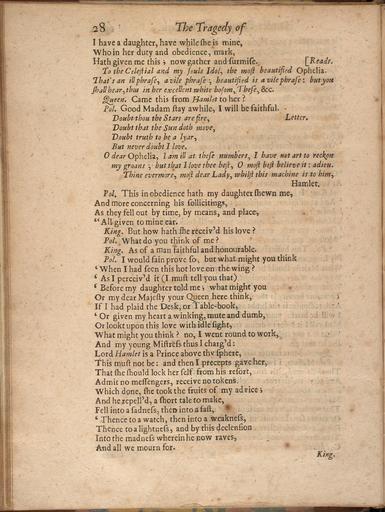 28 The Tragedy of
I have a daughter, have while she is mine,
Who in her duty and obedience, mark,
Hath given me this; now gather and surmise. [Reads.
To the Celestial and my souls Idol, the most beautified Ophelia.
That's an ill phrase, a vile phrase; beautified is a vile phrase: but you
shall hear, thus in her excellent white bosom, These, &c.
Queen. Came this from Hamlet to her?
Pol. Good Madam stay awhile, I will be faithful.
Doubt thou the Stars are fire, Letter.
Doubt that the Sun doth move,
Doubt truth to be a lyar,
But never doubt I love.
O dear Ophelia, I am ill at these numbers, I have not art to reckon
my groans; but that I love thee best, O most best believe it: adieu.
Thine evermore, most dear Lady, whilst this machine is to him,
Hamlet.
Pol. This in obedience hath my daughter shewn me,
And more concerning his sollicitings,
As they fell out by time, by means, and place,
“ All given to mine ear.
King. But how hath she receiv'd his love?
Pol. What do you think of me?
King. As of a man faithful and honourable.
Pol. I would fain prove so, but what might you think
‘ When I had seen this hot love on the wing?
‘ As I perceiv'd it (I must tell you that)
‘ Before my daughter told me; what might you
Or my dear Majesty your Queen here think,
If I had plaid the Desk, or Table-book,
‘ Or given my heart a winking, mute and dumb,
Or lookt upon this love with idle sight,
What might you think? no, I went round to work,
And my young Mistress thus I charg'd:
Lord Hamlet is a Prince above thy sphere,
This must not be: and then I precepts gave her,
That she should lock her self from his resort,
Admit no messengers, receive no tokens.
Which done, she took the fruits of my advice;
And he repell'd, a short tale to make,
Fell into a sadness, then into a fast,
‘ Thence to a watch, then into a weakness,
Thence to a lightness, and by this declension
Into the madness wherein he now raves,
And all we mourn for.
King.